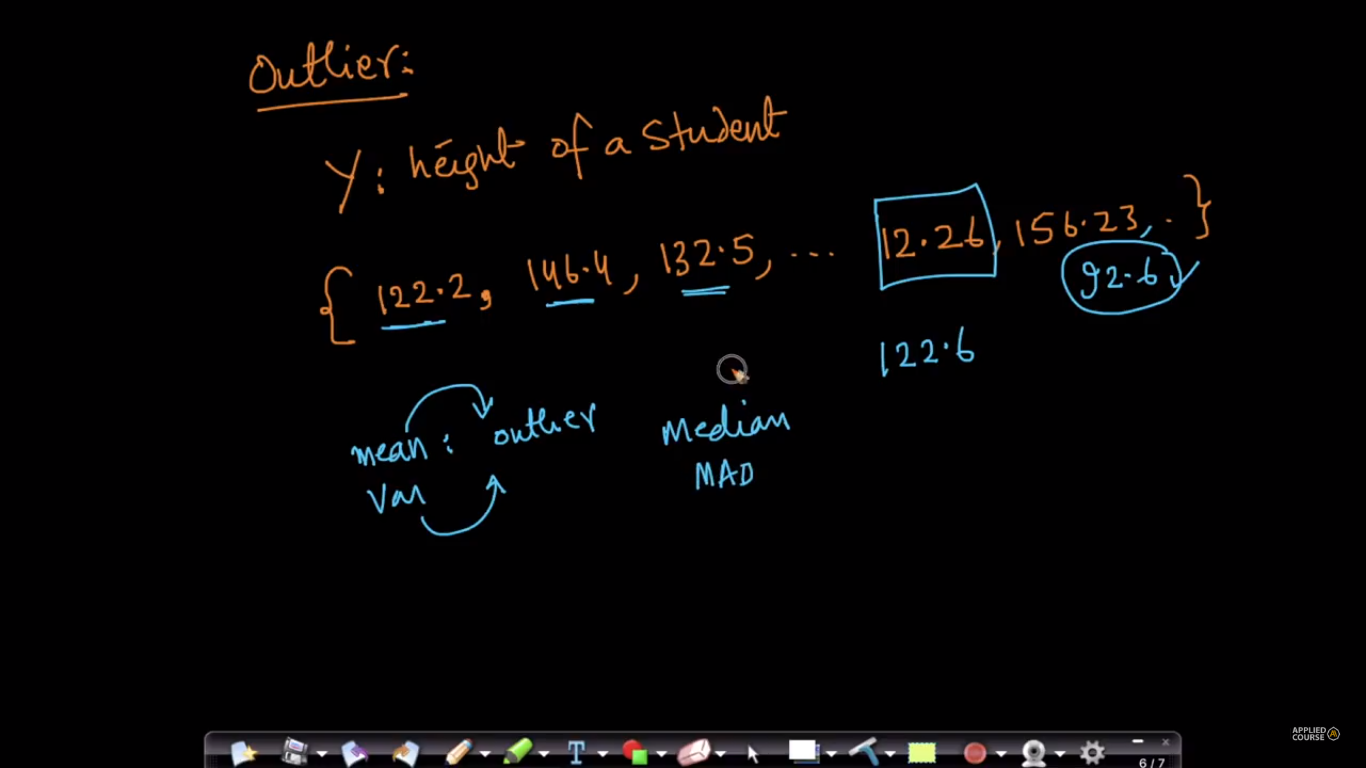 Outlier:
Y: height of a student
{ 122.2, 146.4, 132.5, ... 12.26, 156.23, . }
92.6 ✓
122.6
mean : outlier
Var
Median
MAD
6 / 7
APPLIED
COURSE